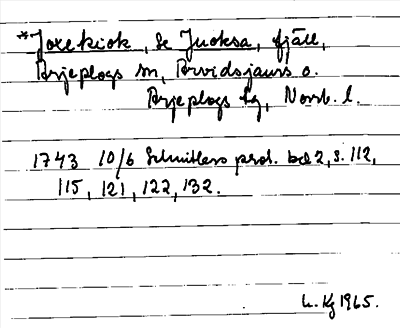 *Joxekiok, se Juoksa, fjäll,
Arjeplogs sn, Arvidsjaurs o.
Arjeplogs tg, Norrb. l.
1743 10/6 Schnitlers prot. bd 2, s. 112,
115, 121, 122, 132.
L. Kg 1965.